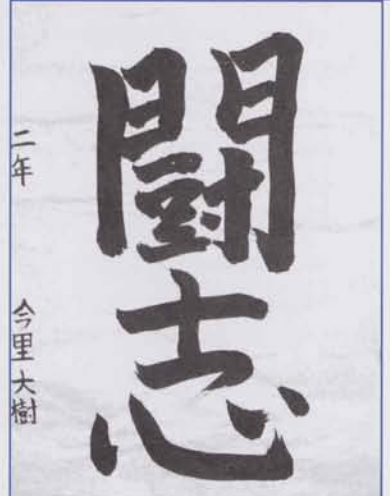 闘志
二年 今里大樹